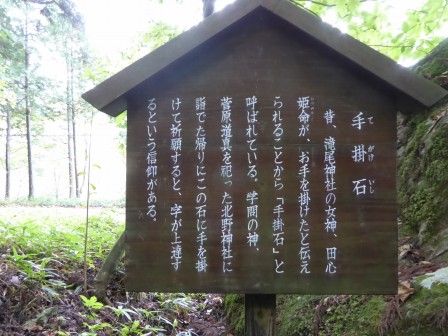 手掛石
てかけいし
昔、滝尾神社の女神、田心
姫命が、お手を掛けたと伝え
られることから「手掛石」と
呼ばれている。学問の神、
菅原道真を祀った北野神社に
詣でた帰りにこの石に手を掛
けて祈願すると、字が上達す
るという信仰がある。